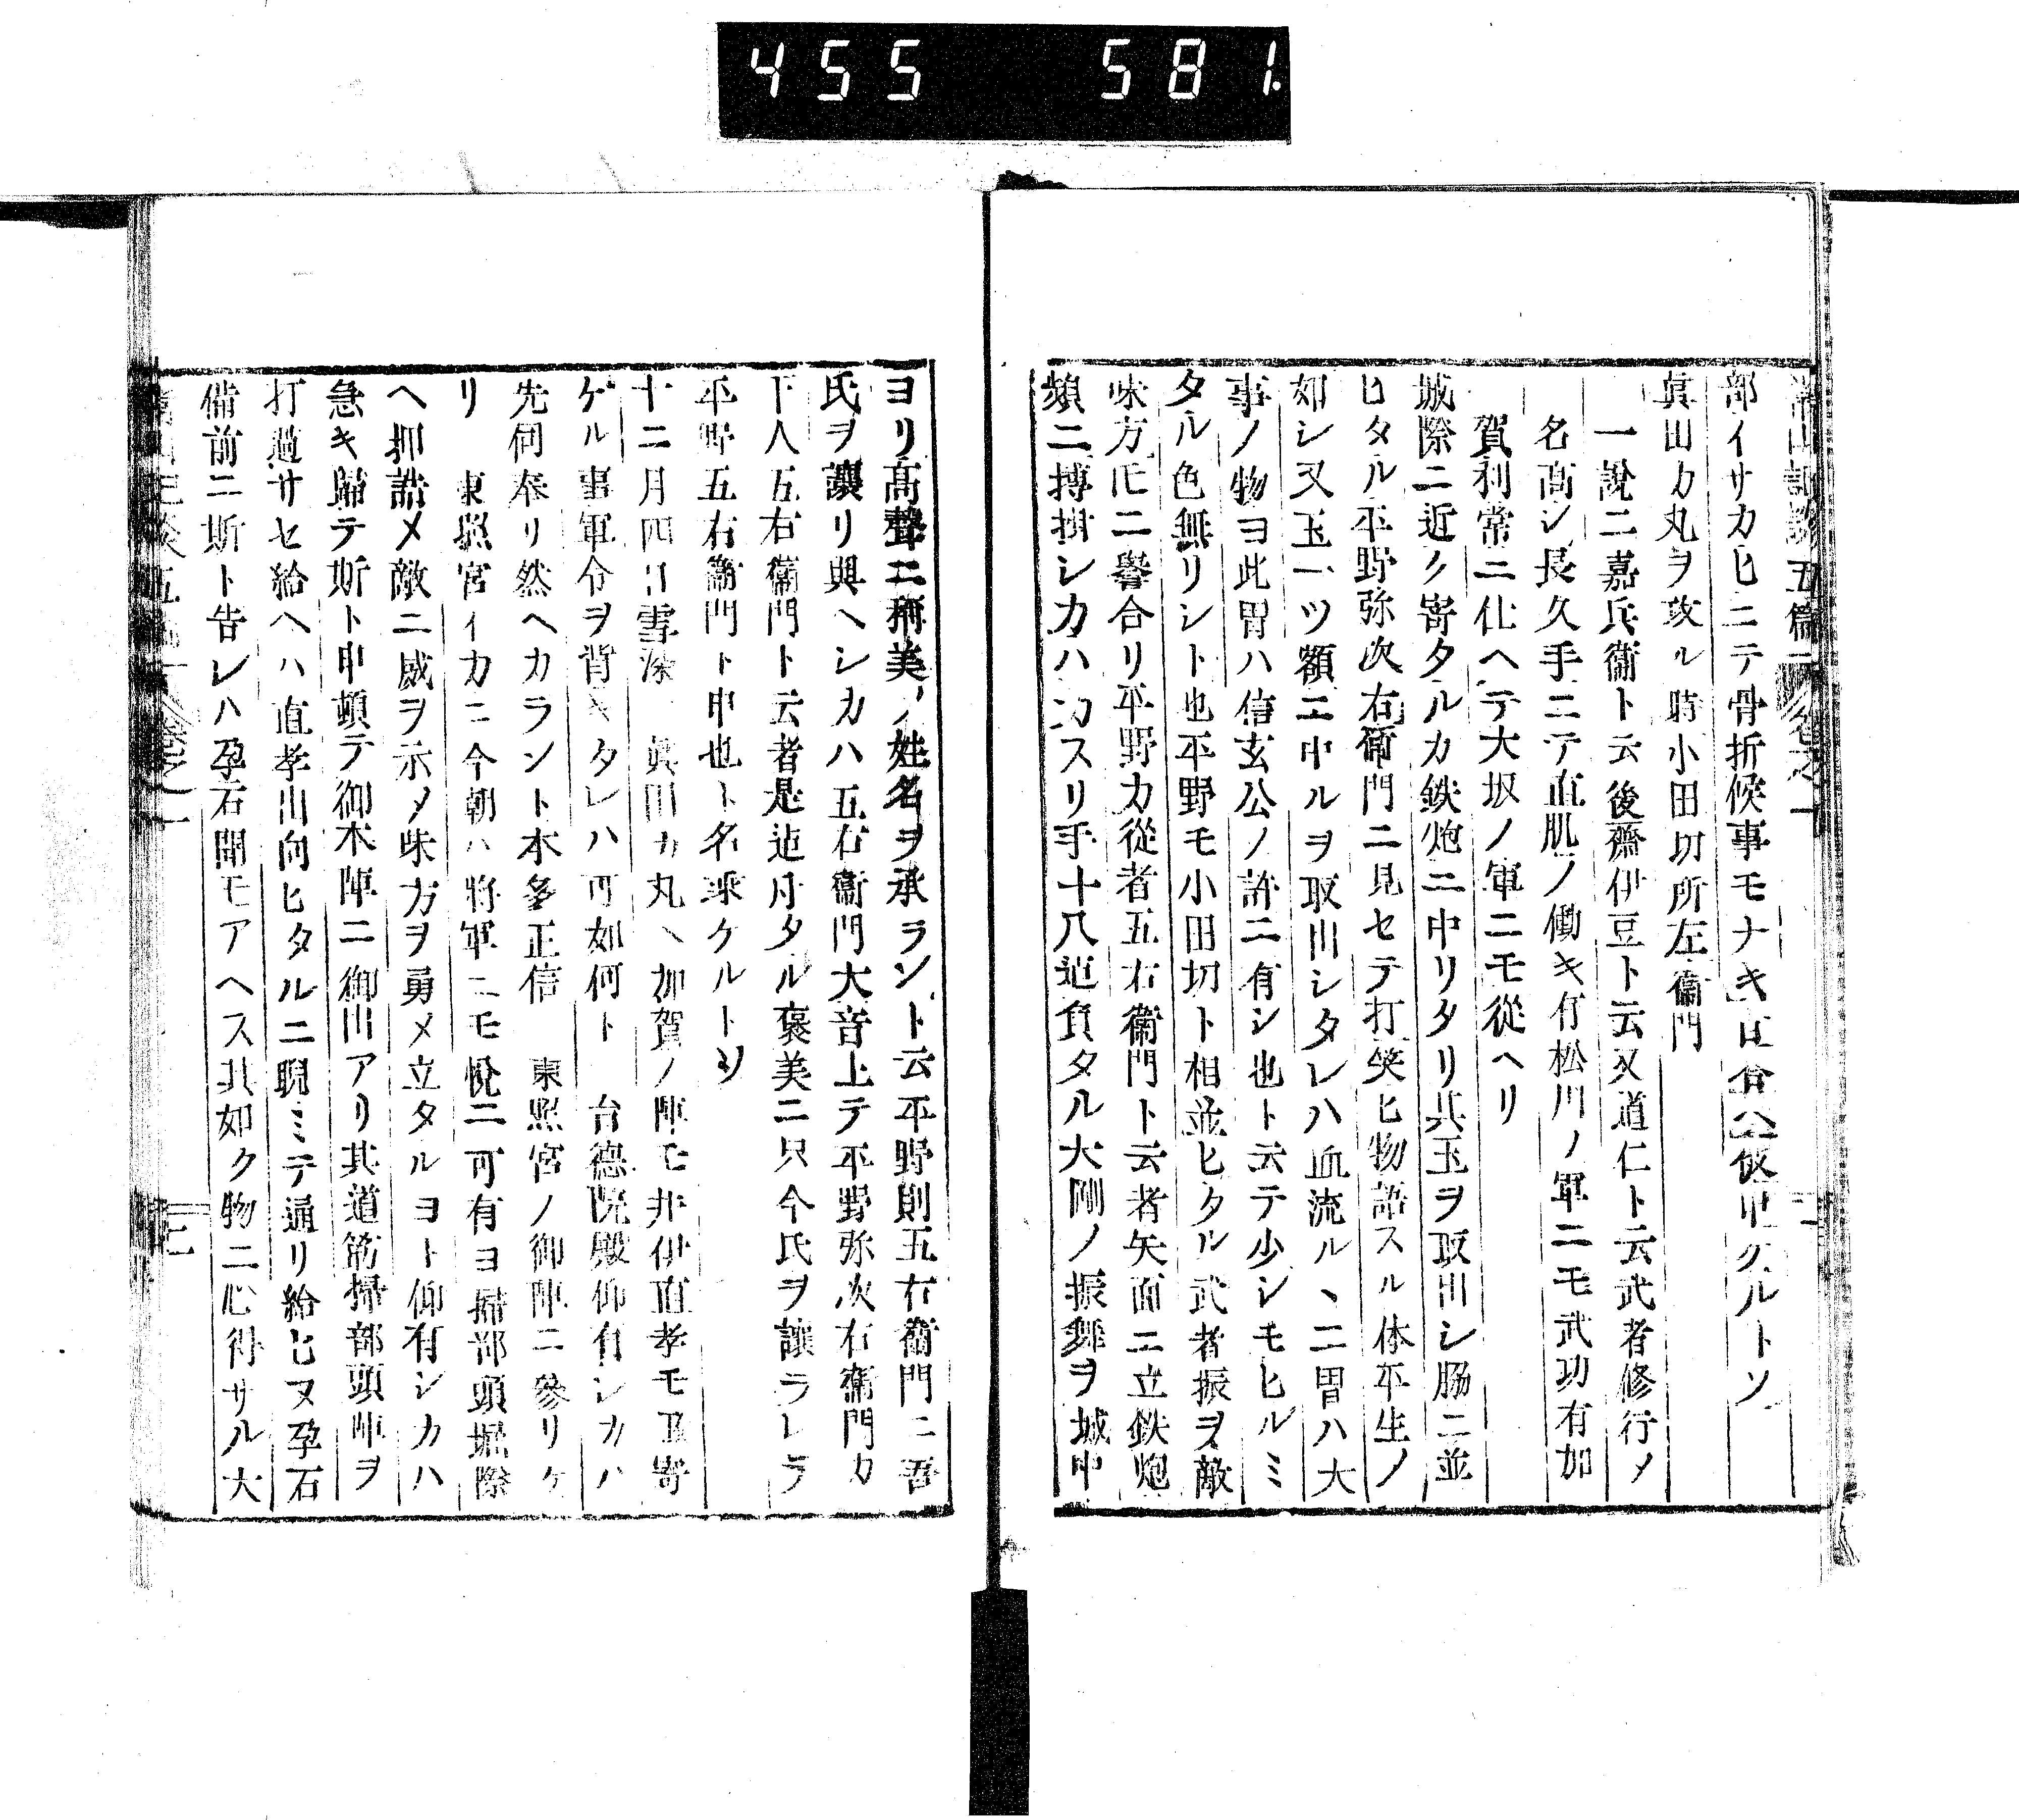 455 581.
部イサカヒニテ骨折候事モナキ
眞田カ丸ヲ攻ル時小田切所左衞門
一說ニ嘉兵衞ト云後齋伊豆ト云又道仁ト云武者修行メ
名高シ長久手ニテ直肌ノ働キ有松川ノ軍ニモ武功有加
賀利常ニ仕ヘテ大坂ノ軍ニモ從ヘリ
城際ニ近ク寄タルカ鉄炮ニ中リタリ其玉ヲ取出シ膓ニ並
ヒタル平野弥次右衞門ニ見セテ打笑ヒ物語スル体平生ノ
如シ又玉一ツ額ニ中ルヲ取出シタレハ血流ルヽニ冑ハ大
事ノ物ヨ此冑ハ信玄公ノ許ニ有シ也ト云テ少シモヒルミ
タル色無リシト也平野モ小田切ト相並ヒタル武者振ヲ敵
味方𪜈ニ譽合リ平野カ從者五右衞門ト云者矢面ニ立鉄炮
頻ニ搏掛シカハカスリ手十八迠負タル大剛ノ振舞ヲ城中
ヨリ髙聲ニ稱美メ姓名ヲ承ラント云平野則五右衞門ニ吾
氏ヲ讓リ與ヘシカハ五右衞門大音上テ平野弥次右衞門カ
下人五右衞門ト云者是迠ナタル褒美ニ只今氏ヲ讓ラレテ
平野五右衞門ト申也ト名乘ケルトソ
十二月四日雪深 眞田カ丸ヘ加賀ノ陣モ井伊直孝モ亟寄
ゲル事軍令ヲ背キタレハ可如何ト 台德院殿仰有シカハ
先伺奉リ然ヘカラント本多正信 東照宮ノ御陣ニ參リケ
リ 東照宮イカニ今朝ハ將軍ニモ悅ニ可有ヨ掃部頭堀際
ヘ押詰メ敵ニ威ヲ示メ味方ヲ勇メ立タルヨト仰有シカハ
急キ歸テ斯ト申頓テ御本陣ニ御出アリ其道筋掃部頭陣ヲ
打過サセ給ヘハ直孝出向ヒタルニ睨ミテ通リ給ヒヌ孕石
備前ニ斯ト告レハ孕石聞モアヘス其如ク物ニ心得サル大